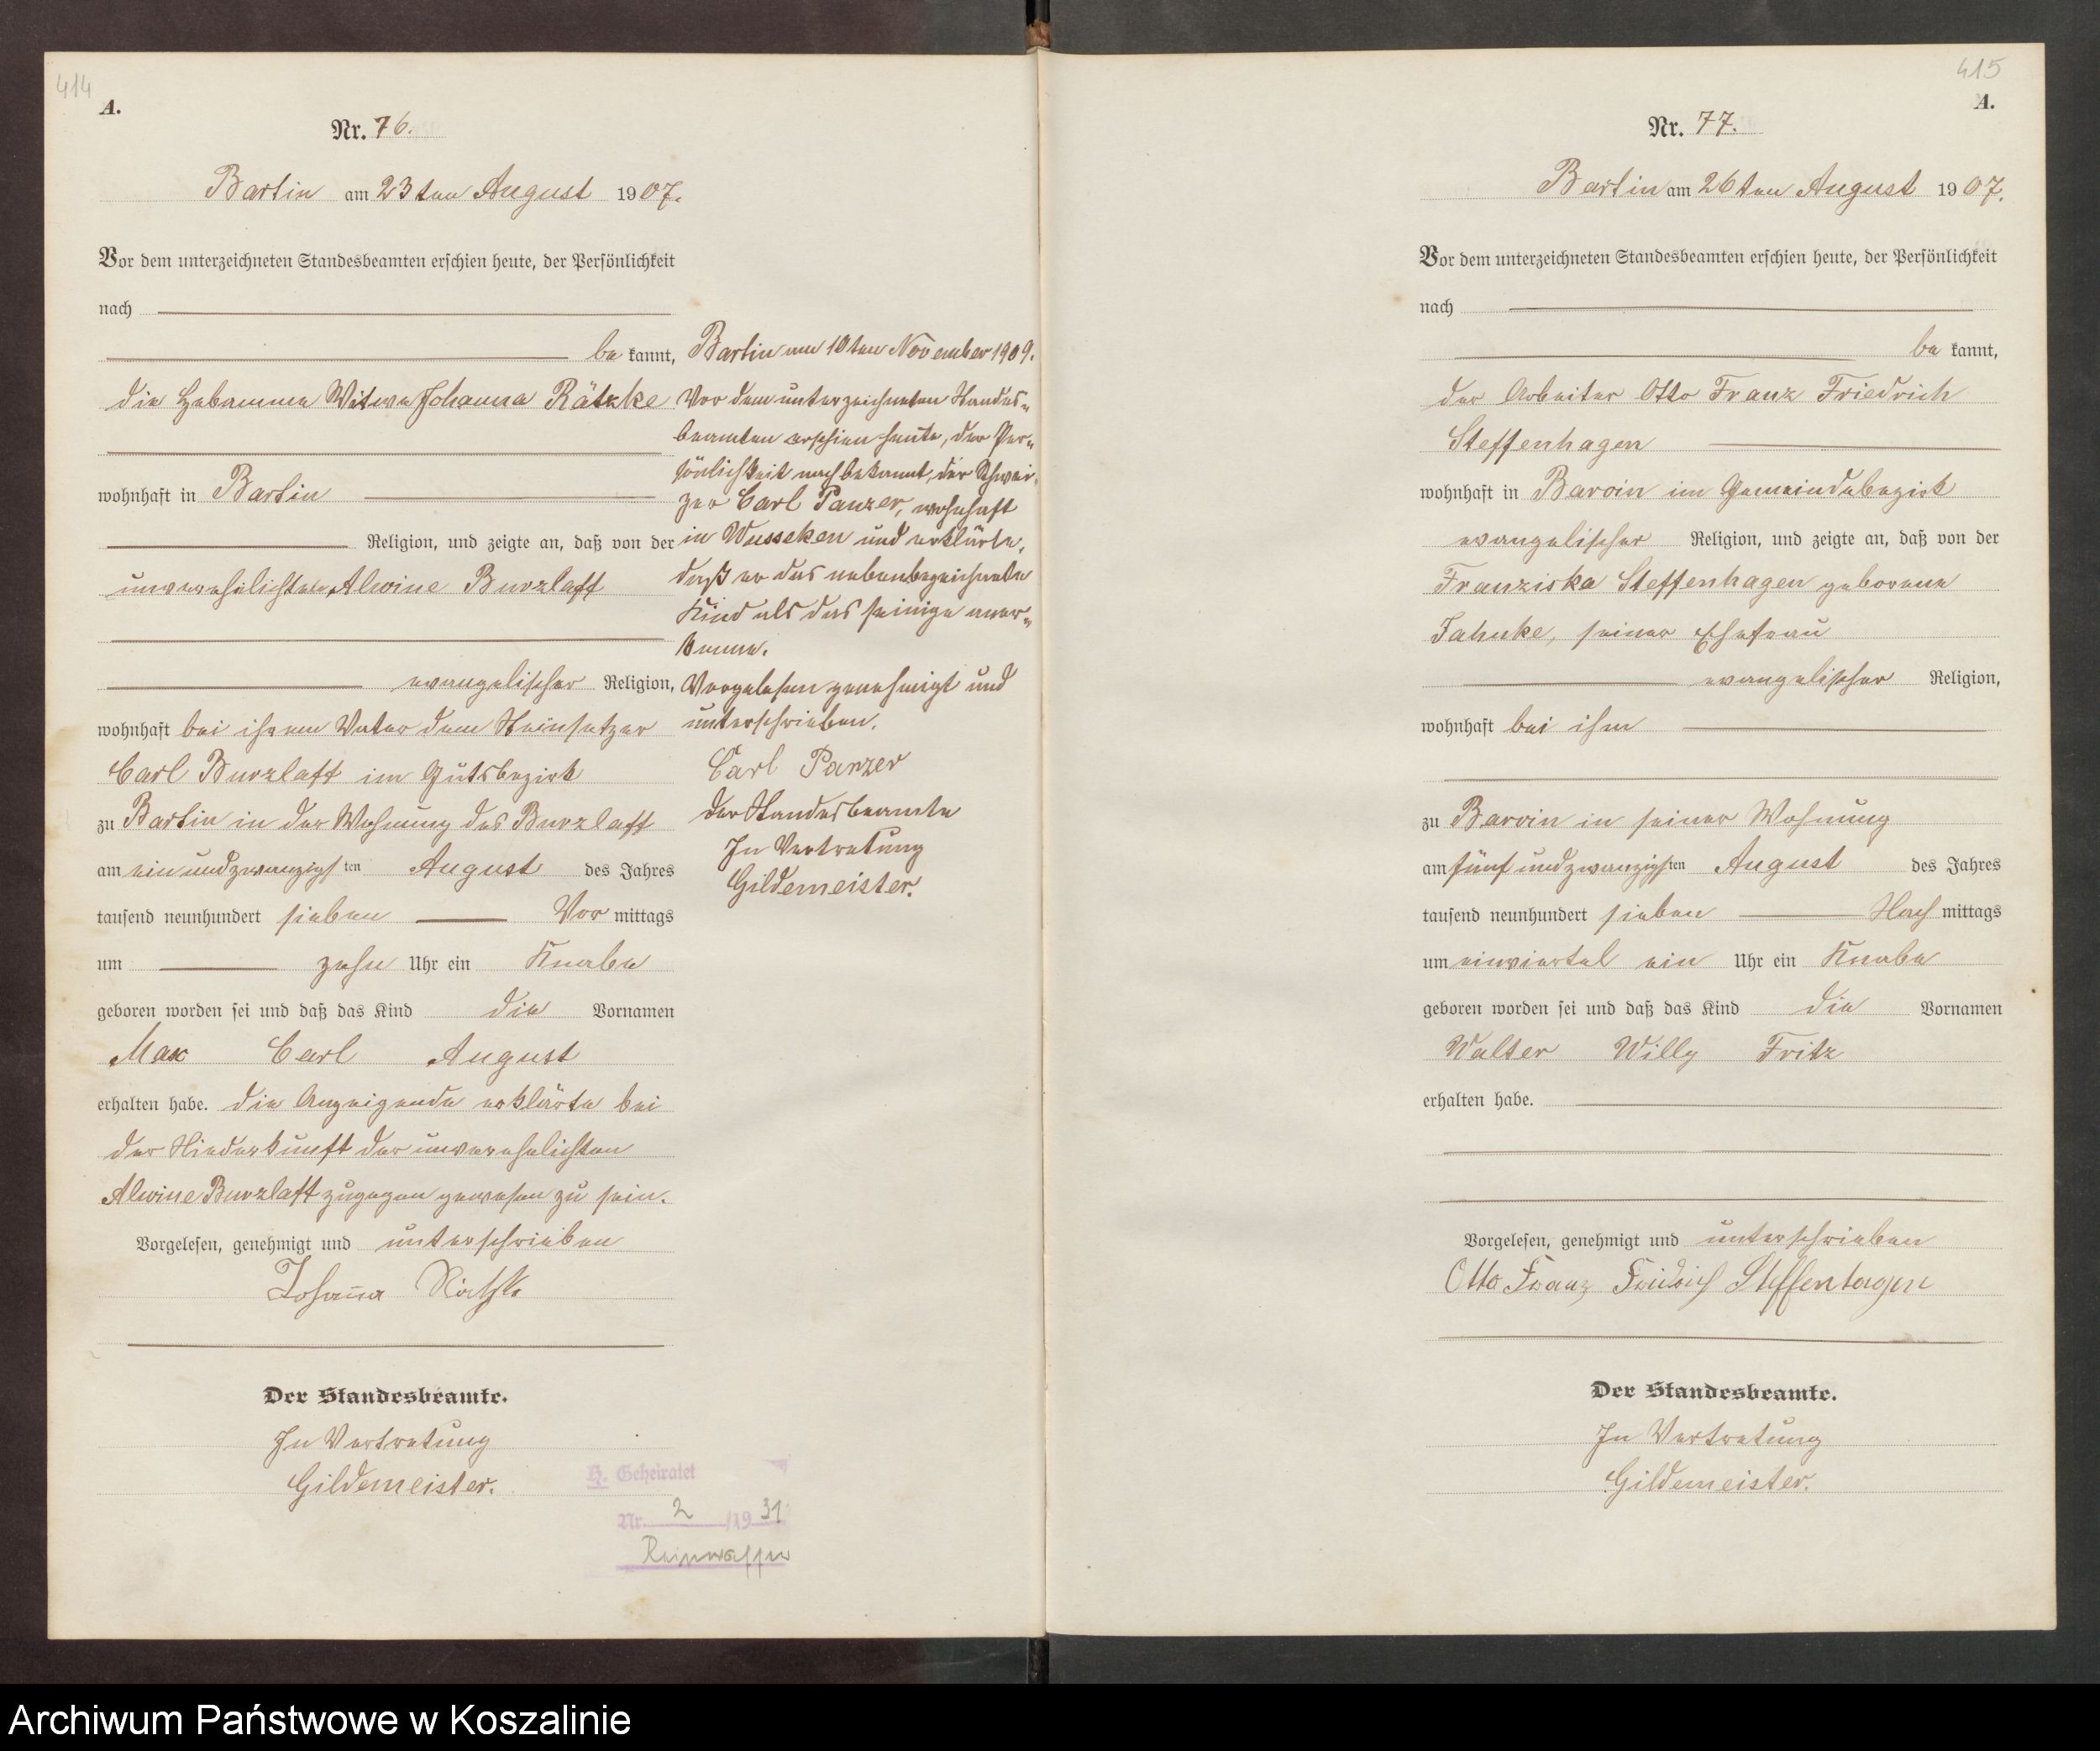 414
A.
Nr. 76.
Bartin am 23ten August 1907.
Vor dem unterzeichneten Standesbeamten erschien heute, der Persönlichkeit
nach
be kannt,
die Hebamme Witwe Johanna Rätzke
wohnhaft in Bartin
Religion, und zeigte an, daß von der
unverehelichten Alwine Burzlaff
evangelischer Religion,
wohnhaft bei ihrem Vater dem Steinsetzer
Carl Burzlaff im Gutsbezirk
zu Bartin in der Wohnung des Burzlaff
am ein und zwanzigsten August des Jahres
tausend neunhundert sieben Vor mittags
um zehn Uhr ein Knabe
geboren worden sei und daß das Kind die Vornamen
Max Carl August
erhalten habe. Die Anzeigende erklärte bei
der Niederkunft der unverehelichten
Alwine Burzlaff zugegen gewesen zu sein.
Vorgelesen, genehmigt und unterschrieben
Johanna Rätzke
Der Standesbeamte.
In Vertretung
Gildemeister.
H. Geheiratet
Nr. 2 /1931
Bartin am 10ten November 1909.
Vor dem unterzeichneten Standes-
beamten erschien heute, der Per-
sönlichkeit nach bekannt, der Schwei-
zer Carl Panzer, wohnhaft
in Wusseken und erklärte,
daß er das nebenbezeichnete
Kind als das seinige aner-
kenne.
Vorgelesen genehmigt und
unterschrieben.
Carl Panzer
Der Standesbeamte
In Vertretung
Gildemeister.
415
A.
Nr. 77.
Bartin am 26ten August 1907.
Vor dem unterzeichneten Standesbeamten erschien heute, der Persönlichkeit
nach
be kannt,
der Arbeiter Otto Franz Friedrich
Steffenhagen
wohnhaft in Barvin im Gemeindebezirk
evangelischer Religion, und zeigte an, daß von der
Franziska Steffenhagen geborene
Jahnke, seiner Ehefrau
evangelischer Religion,
wohnhaft bei ihm
zu Barvin in seiner Wohnung
am fünf und zwanzigsten August des Jahres
tausend neunhundert sieben Nach mittags
um einviertel ein Uhr ein Knabe
geboren worden sei und daß das Kind die Vornamen
Walter Willy Fritz
erhalten habe.
Vorgelesen, genehmigt und unterschrieben
Otto Franz Friedrich Steffenhagen
Der Standesbeamte.
In Vertretung
Gildemeister.
Archiwum Państwowe w Koszalinie